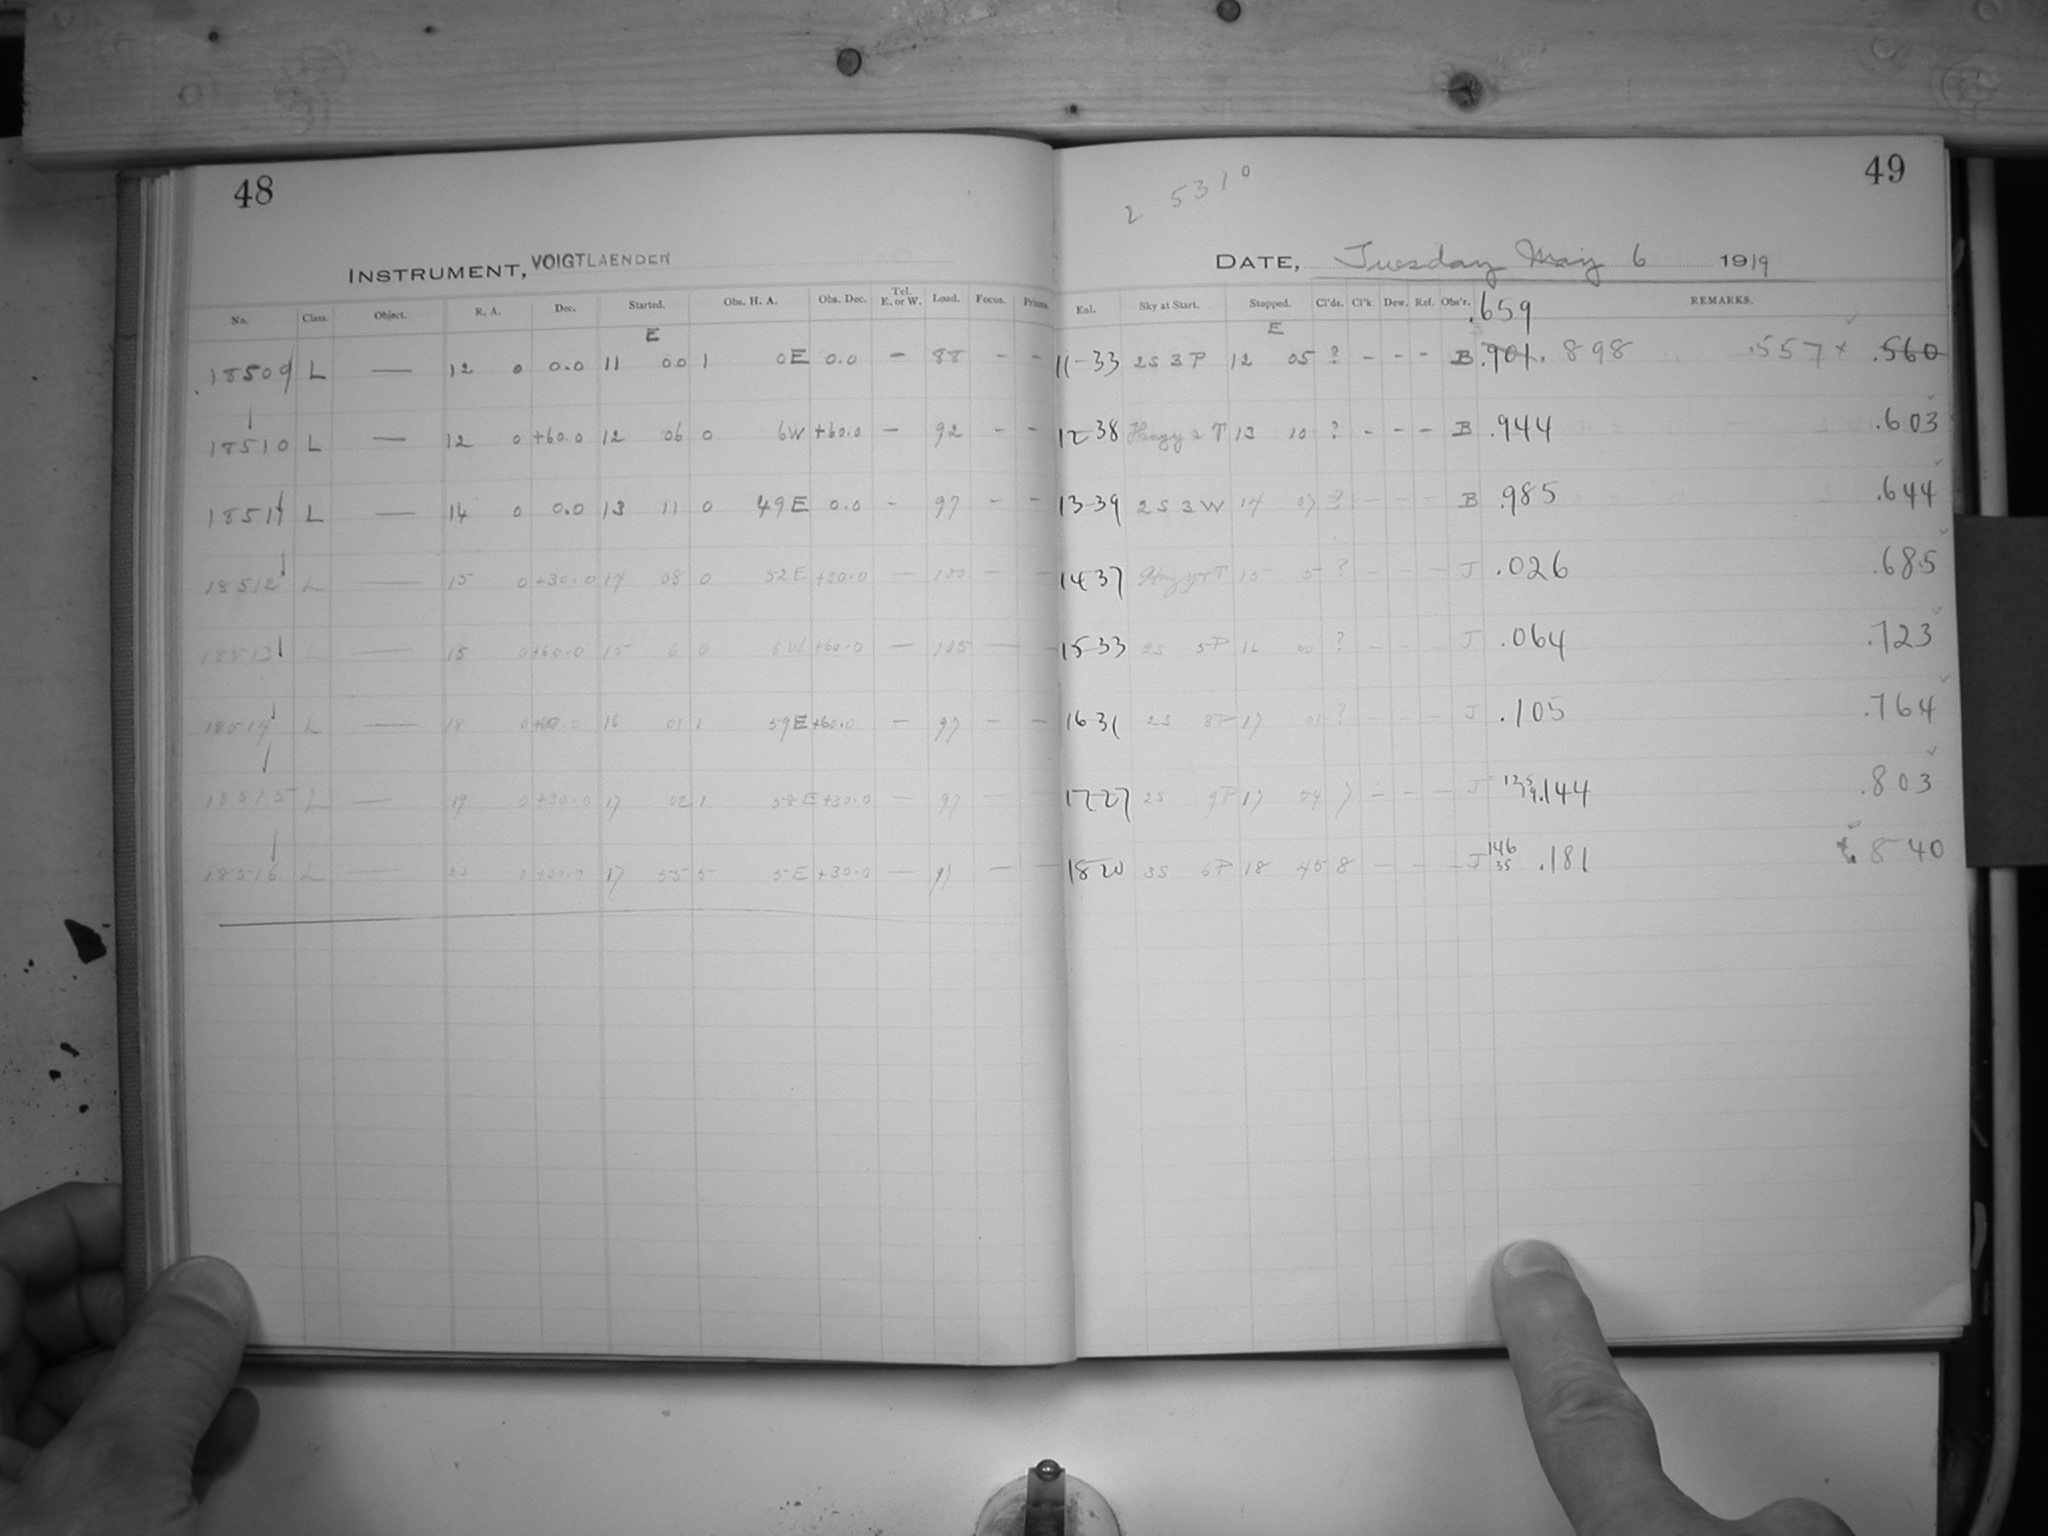 48
INSTRUMENT, VOIGTLAENDER
No. Class. Object. R. A. Dec. Started. Obs. H. A. Obs. Dec. Tel. E. or W. Load. Focus. Prisms.
E
18509 L — 12 0 0.0 11 00 1 0E 0.0 — 88 - -
18510 L — 12 0 +60.0 12 06 0 6W +60.0 — 92 - -
18511 L — 14 0 0.0 13 11 0 49E 0.0 - 97 - -
18512 L — 15 0 +30.0 14 08 0 52E +30.0 — 100 - -
18513 L — 15 0 +60.0 15 6 0 6W +60.0 — 105 — -
18514 L — 18 0 16 01 1 59E +60.0 — 97 - -
18515 L — 19 0 +30.0 17 02 1 E +30.0 — 97 — -
18516 L — 23 0 17 55 5 5E +30.0 — 91 — -
49
2 5310
DATE, Tuesday May 6 1919
Exl. Sky at Start. Stopped. Cl'ds. Cl'k. Dew. Ref. Obs'r. REMARKS.
E .659
11-33 2S 3P 12 05 ? - - - B .901 .898 .557 x .560
12-38 Hazy & T 13 10 ? - - - B .944 .603
13-39 2S 3W 14 07 ? - - - B .985 .644
14 37 Hazy & T 15 5 ? - - - J .026 .685
15-33 2S 5P 16 00 ? - - - J .064 .723
16-31 2S 8P 17 01 ? - - - J .105 .764
17-27 2S 9P 17 54 - - - J .144 .803
18-20 3S 6P 18 45 8 - - - J 146 35 .181 .840